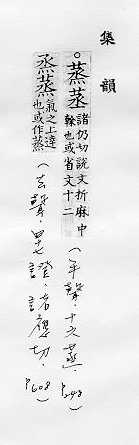 集韻
。蒸𦯇諸仍切說文折麻中
榦也或省文十二
(平聲.十六蒸.
P.248)
烝蒸氣之上達
也或作蒸
(去聲.四十七證.諸應切.
P.608)